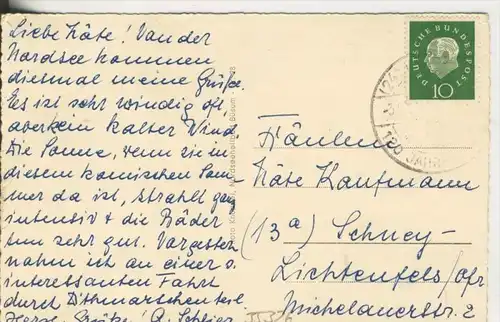 Liebe Käte! Von der
Nordsee kommen
diesmal meine Grüße.
Es ist sehr windig oft,
aber kein kalter Wind.
Die Sonne, wenn sie in
diesem komischen Som-
mer da ist, strahlt ganz
intensiv & die Bäder
tun sehr gut. Vorgestern
nahm ich an einer s.
interessanten Fahrt
durch Dithmarschen teil
Herzl. Grüße! A.
DEUTSCHE BUNDESPOST
10
120 JAHRE
Fräulein
Käte Kaufmann
(13a) Schney-
Lichtenfels/Ofr
Michelauerstr. 2